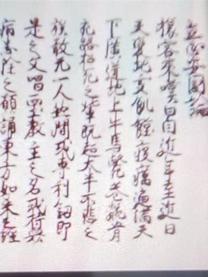 立正安国論
旅客来嘆曰自近年至近日
天変地夭飢饉疫癘遍満天
下広迸地上牛馬斃巷骸骨
充路招死之輩既超大半不悲之
族敢無一人然間或専利剣即
是之文唱西土教主之名或恃衆
病悉除之願誦東方如来之経